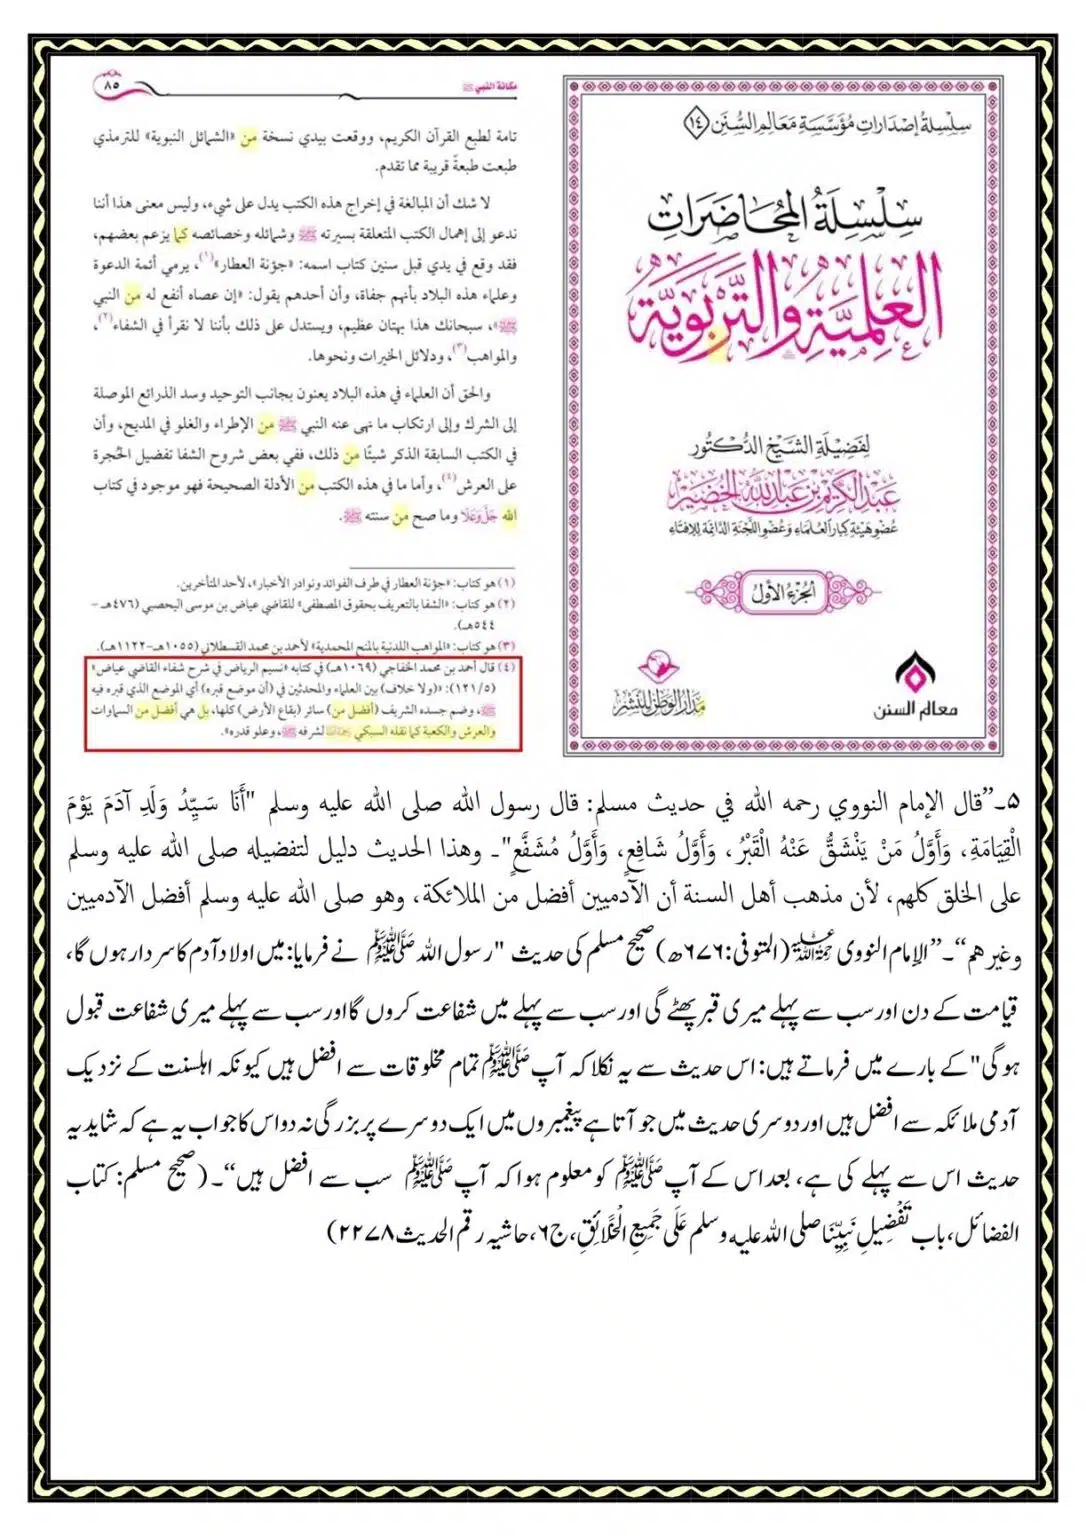 مكانة النبي ﷺ
٨٥
تامة لطبع القرآن الكريم، ووقعت بيدي نسخة من «الشمائل النبوية» للترمذي
طبعت طبعةً قريبة مما تقدم.
لا شك أن المبالغة في إخراج هذه الكتب يدل على شيء، وليس معنى هذا أننا
ندعو إلى إهمال الكتب المتعلقة بسيرته ﷺ وشمائله وخصائصه كما يزعم بعضهم،
فقد وقع في يدي قبل سنين كتاب اسمه: «جؤنة العطار»(١)، يرمي أئمة الدعوة
وعلماء هذه البلاد بأنهم جفاة، وأن أحدهم يقول: «إن عصاه أنفع له من النبي
ﷺ»، سبحانك هذا بهتان عظيم، ويستدل على ذلك بأننا لا نقرأ في الشفاء(٢)،
والمواهب(٣)، ودلائل الخيرات ونحوها.
والحق أن العلماء في هذه البلاد يعنون بجانب التوحيد وسد الذرائع الموصلة
إلى الشرك وإلى ارتكاب ما نهى عنه النبي ﷺ من الإطراء والغلو في المديح، وأن
في الكتب السابقة الذكر شيئًا من ذلك، ففي بعض شروح الشفا تفضيل الحُجرة
على العرش(٤)، وأما ما في هذه الكتب من الأدلة الصحيحة فهو موجود في كتاب
الله جَلَّوَعَلَا وما صح من سنته ﷺ.
(١) هو كتاب: «جؤنة العطار في طرف الفوائد ونوادر الأخبار»، لأحد المتأخرين.
(٢) هو كتاب: «الشفا بالتعريف بحقوق المصطفى» للقاضي عياض بن موسى اليحصبي (٤٧٦هـ -
٥٤٤هـ).
(٣) هو كتاب: «المواهب اللدنية بالمنح المحمدية» لأحمد بن محمد القسطلاني (١٠٥٥هـ-١١٢٢هـ).
(٤) قال أحمد بن محمد الخفاجي (١٠٦٩هـ) في كتابه «نسيم الرياض في شرح شفاء القاضي عياض»
(١٢١/٥): «(ولا خلاف) بين العلماء والمحدثين في (أن موضع قبره) أي الموضع الذي قبره فيه
ﷺ، وضم جسده الشريف (أفضل من) سائر (بقاع الأرض) كلها، بل هي أفضل من السماوات
والعرش والكعبة كما نقله السبكي لشرفه ﷺ، وعلو قدره».
سلسلة إصدارات مؤسسة معالم السنن ١٤
سلسلة المحاضرات
العلمية والتربوية
لفضيلة الشيخ الدكتور
عبد الكريم بن عبد الله الخضير
عضو هيئة كبار العلماء وعضو اللجنة الدائمة للإفتاء
الجزء الأول
مدار الوطن للنشر
معالم السنن
۵۔”قال الإمام النووي رحمه الله في حديث مسلم: قال رسول الله صلى الله عليه وسلم "أَنَا سَيِّدُ وَلَدِ آدَمَ يَوْمَ
الْقِيَامَةِ، وَأَوَّلُ مَنْ يَنْشَقُّ عَنْهُ الْقَبْرُ، وَأَوَّلُ شَافِعٍ، وَأَوَّلُ مُشَفَّعٍ"۔ وهذا الحديث دليل لتفضيله صلى الله عليه وسلم
على الخلق كلهم، لأن مذهب أهل السنة أن الآدميين أفضل من الملائكة، وهو صلى الله عليه وسلم أفضل الآدميين
وغيرهم“۔”الإمام النووی رحمۃ اللہ علیہ (المتوفی:۶۷۶ھ) صحیح مسلم کی حدیث "رسول اللہ ﷺ نے فرمایا: میں اولاد آدم کا سردار ہوں گا،
قیامت کے دن اور سب سے پہلے میری قبر پھٹے گی اور سب سے پہلے میں شفاعت کروں گا اور سب سے پہلے میری شفاعت قبول
ہوگی" کے بارے میں فرماتے ہیں: اس حدیث سے یہ نکلا کہ آپ ﷺ تمام مخلوقات سے افضل ہیں کیونکہ اہلسنت کے نزدیک
آدمی ملائکہ سے افضل ہیں اور دوسری حدیث میں جو آتا ہے پیغمبروں میں ایک دوسرے پر بزرگی نہ دو اس کا جواب یہ ہے کہ شاید یہ
حدیث اس سے پہلے کی ہے، بعد اس کے آپ ﷺ کو معلوم ہوا کہ آپ ﷺ سب سے افضل ہیں“۔ (صحیح مسلم: کتاب
الفضائل، باب تَفْضِيلِ نَبِيِّنَا صلی اللہ علیہ وسلم عَلَى جَمِيعِ الْخَلَائِقِ، ج۶، حاشیہ رقم الحدیث ۲۲۷۸)